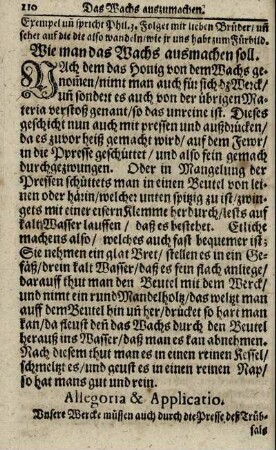 110 Das Wachs auszumachen.
Exempel uñ spricht Phil. 3. Folget mir lieben Brüder / uñ
sehet auf die die also wandeln wie jr uns habt zum Fürbild.
Wie man das Wachs ausmachen soll.
NAch dem das Honig von dem Wachs ge-
nom̃en / nimt man auch für sich dz Werck /
uñ sondert es auch von der übrigen Ma-
teria verstoß genant / so das unreine ist. Dieses
geschicht nun auch mit pressen und außdrücken /
da es zuvor heiß gemacht wird / auf dem Fewr /
in die Ppresse geschüttet / und also fein gemach
durchgezwungen. Oder in Mangelung der
Pressen schüttets man in einen Beutel von lei-
nen oder härin / welcher unten spitzig zu ist / zwin-
gets mit einer eisern Klemme herdurch / lests auf
kalt Wasser lauffen / daß es bestehet. Etliche
machens also / welches auch fast bequemer ist:
Sie nehmen ein glat Bret / stellen es in ein Ge-
fäß / drein kalt Wasser / daß es fein flach anliege /
darauff thut man den Beutel mit dem Werck /
und nimt ein rund Mandelholtz / das weltzt man
auff dem Beutel hin uñ her / drücket so hart man
kan / da fleust deñ das Wachs durch den Beutel
heraus ins Wasser / daß man es kan abnehmen.
Nach diesem thut man es in einen reinen Kessel /
schmeltzt es / und geust es in einen reinen Nap /
so hat mans gut und rein.
Allegoria & Applicatio.
Unsere Wercke müssen auch durch die Presse deß Trüb-
sals